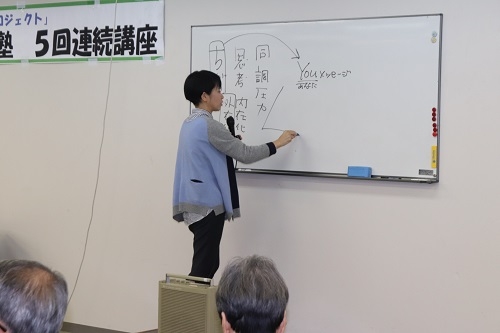 ロジェクト」
塾 5回連続講座
同調圧力
思考
内在化
Youメッセージ
あなた